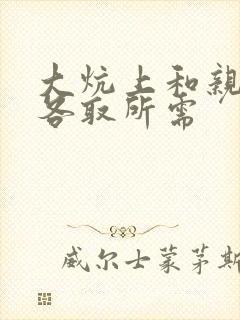 大炕上和亲
各取所需
威尔士蒙茅斯